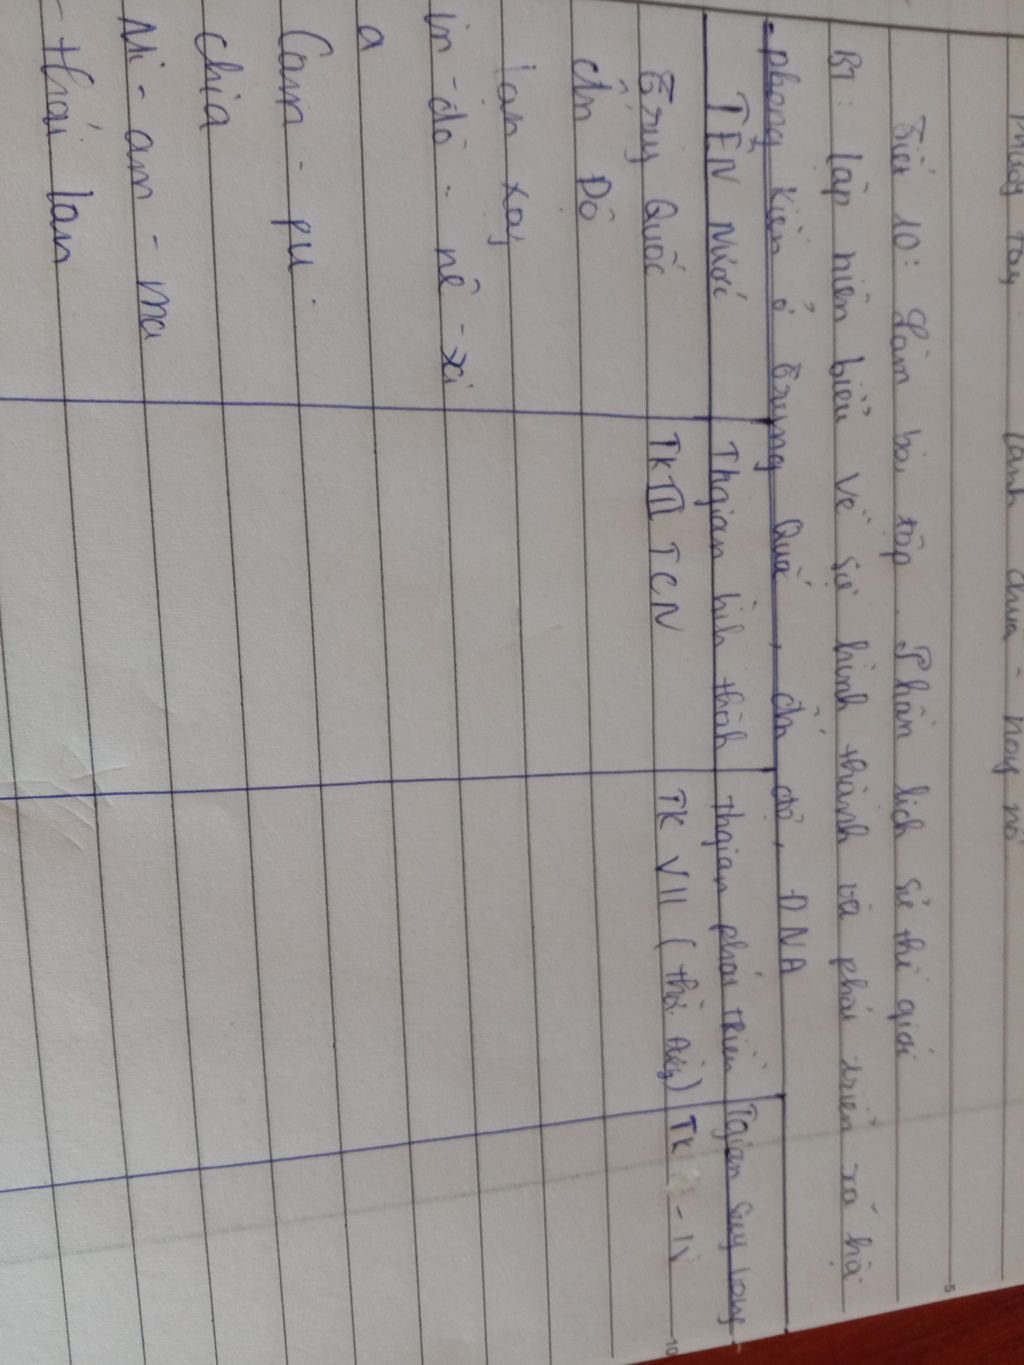 lãnh chúa - nông nô
Tiết 10: Làm bài tập. Phần lịch sử thế giới
BT: lập niên biểu về sự hình thành và phát triển xã hội
phong kiến ở Trung Quốc, Ấn độ, ĐNA
TÊN Nước Thgian hình thành thgian phát triển Tgian suy vong
Trung Quốc TK III TCN TK VII (thời Đường) TK
Ấn Độ
lạn xạng
in - đô - nê - xi
a
Cam - pu -
chia
Mi - an - ma
thái lan
5
10